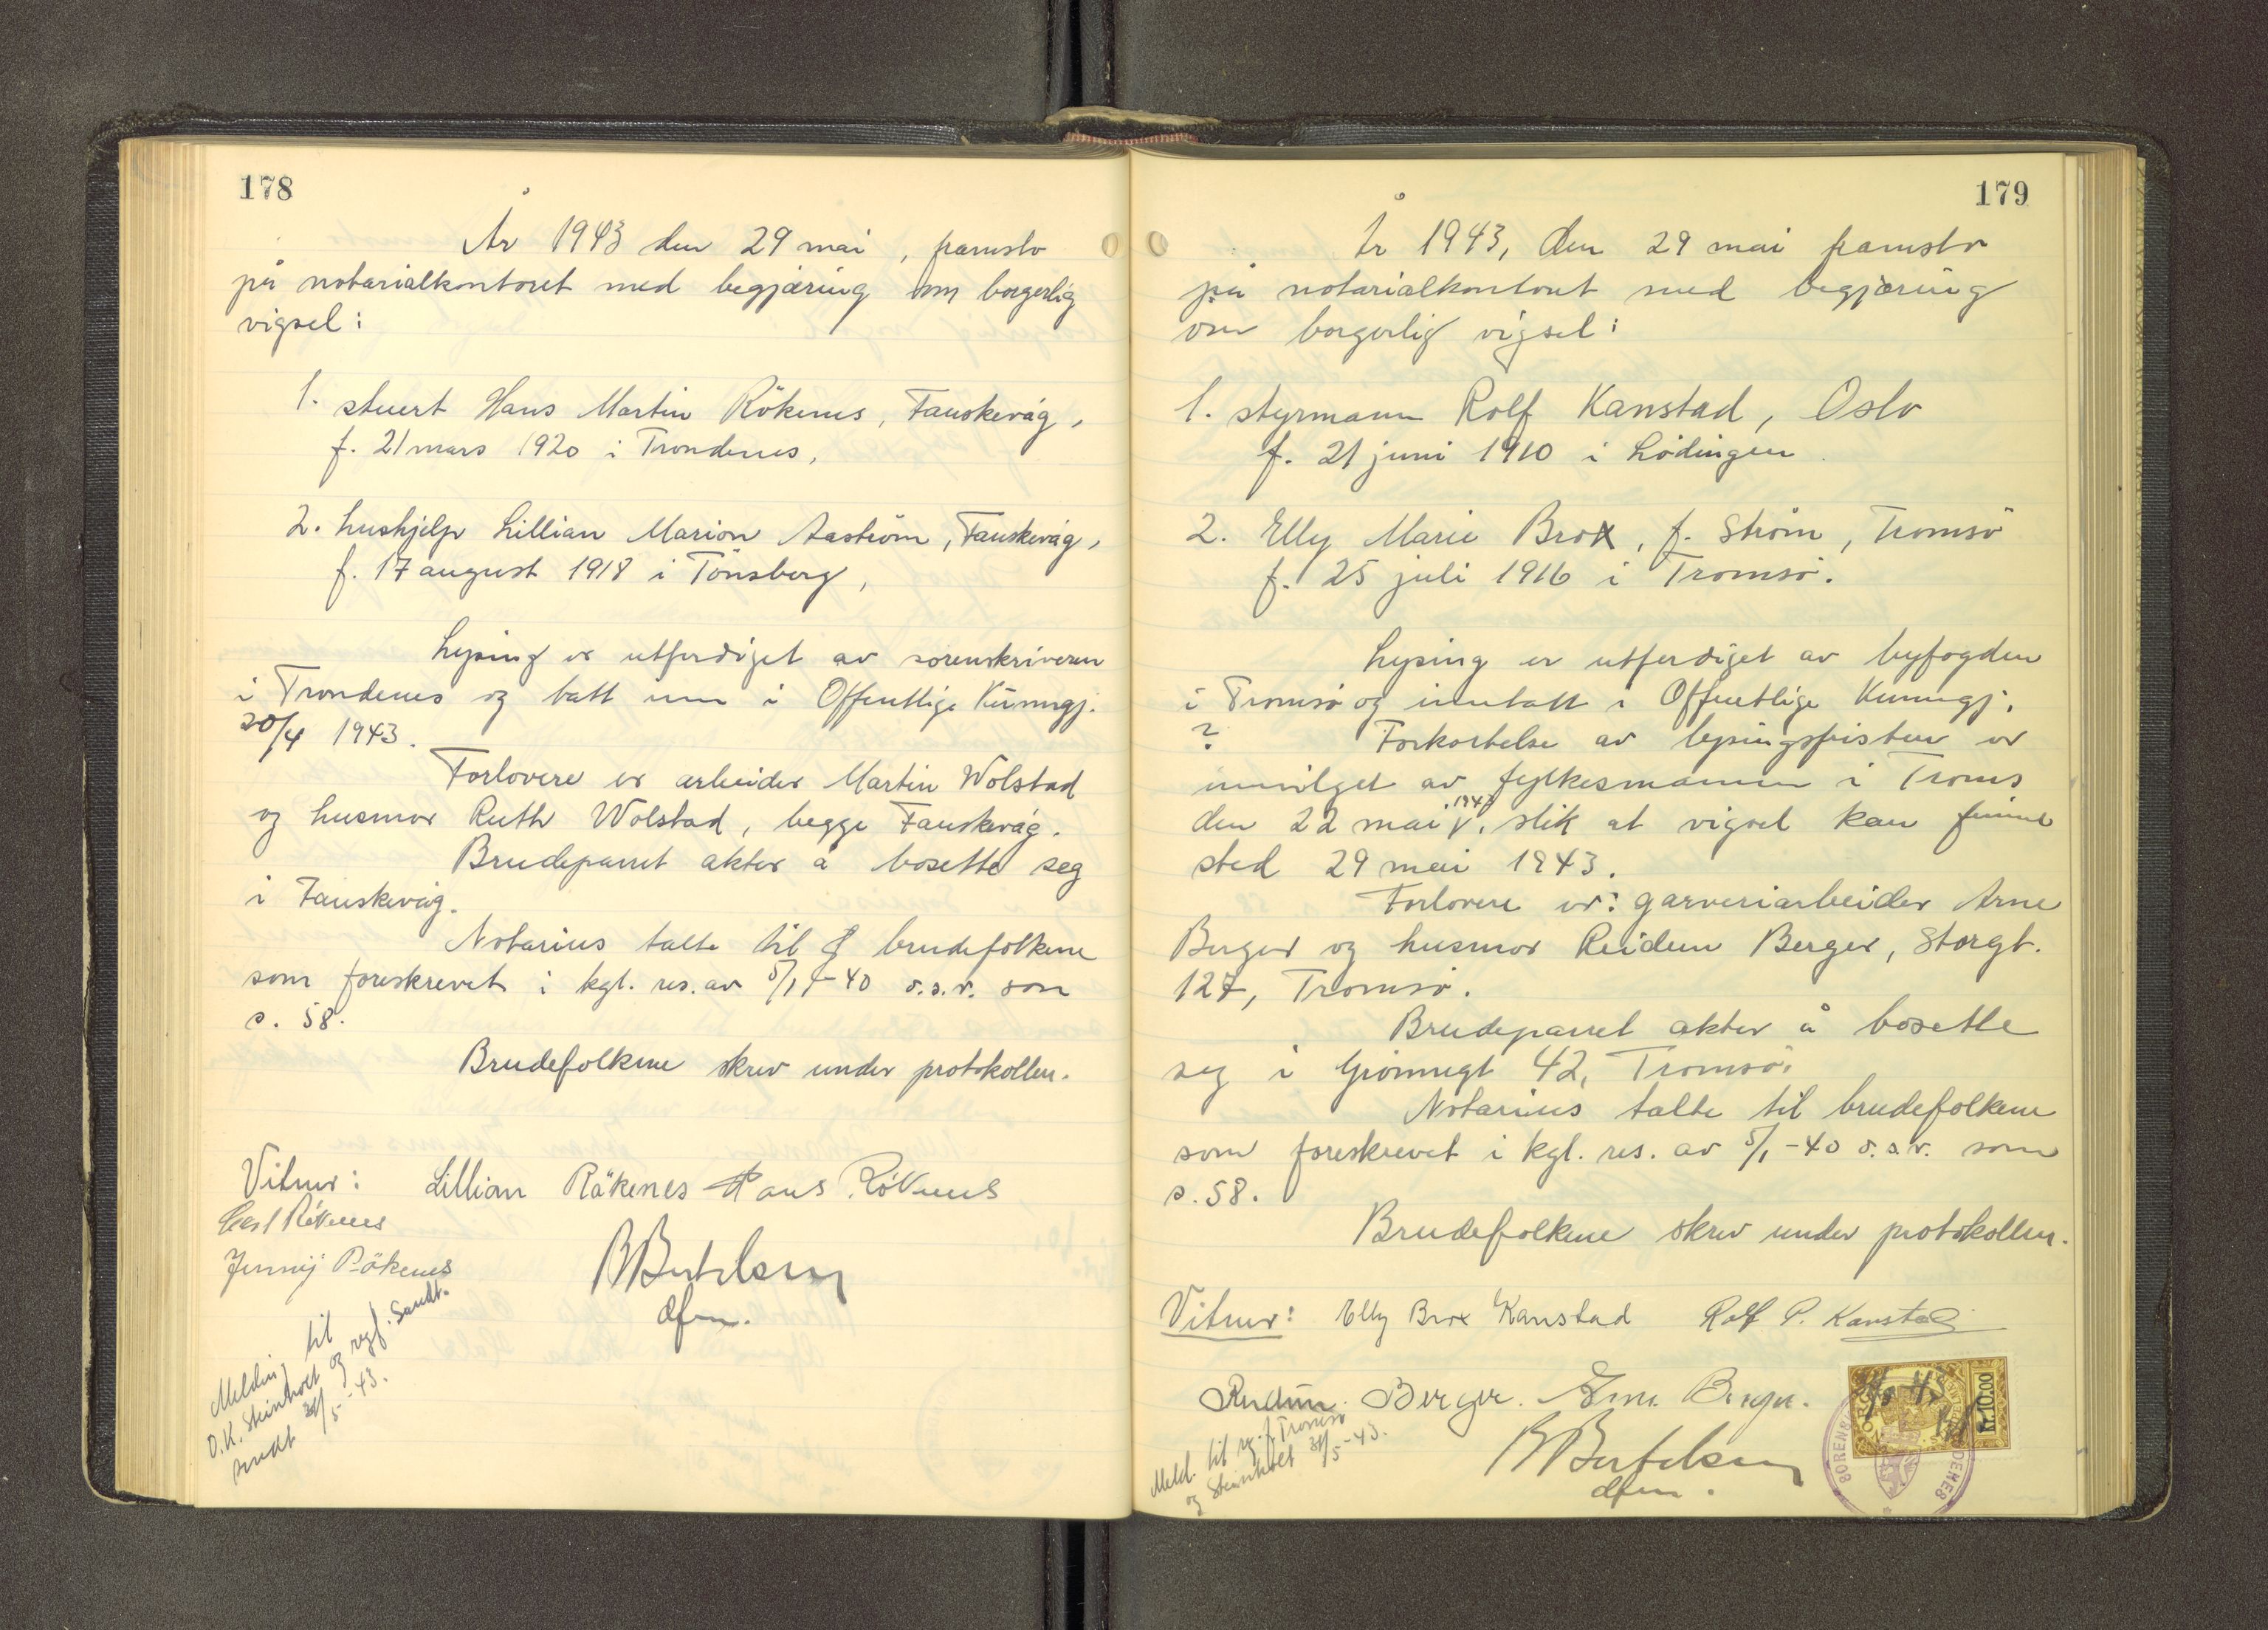 178
År 1943 den 29 mai, framsto
på notarialkontoret med begjæring om borgerlig
vigsel:
1. stuert Hans Martin Rökenes, Fauskevåg,
f. 21 mars 1920 i Trondenes,
2. hushjelp Lillian Marion Aaström, Fauskevåg,
f. 17 august 1918 i Tönsberg,
Lysing er utferdiget av sorenskriveren
i Trondenes og tatt inn i Offentlige Kunngj.
20/4 1943.
Forlovere er arbeider Martin Wolstad
og husmor Ruth Wolstad, begge Fauskevåg.
Brudeparret akter å bosette seg
i Fauskevåg.
Notarius talte til brudefolkene
som foreskrevet i kgl. res. av 5/1-40 o.s.v. som
s. 58.
Brudefolkene skrev under protokollen.
Vitner: Lillian Rökenes Hans Rökenes
Carl Rökenes
Jennÿ Rökenes
B Bertelsen
dfm.
Melding til
O.K. Steinkvet og rgf. Sandt.
sendt 31/5-43.
179
År 1943, den 29 mai framsto
på notarialkontoret med begjæring
om borgerlig vigsel:
1. styrmann Rolf Kanstad, Oslo
f. 21 juni 1910 i Lödingen
2. Elly Marie Brox, f. Ström, Tromsö
f. 25 juli 1916 i Tromsö.
Lysing er utferdiget av byfogden
i Tromsö og inntatt i Offentlige Kunngj.
? Forkortelse av lysingsfristen er
innvilget av fylkesmannen i Troms
den 22 mai 1943, slik at vigsel kan finne
sted 29 mai 1943.
Forlovere er: garveriarbeider Arne
Berger og husmor Reidun Berger, Storgt.
127, Tromsö.
Brudeparret akter å bosette
seg i Grönnegt 42, Tromsö.
Notarius talte til brudefolkene
som foreskrevet i kgl. res. av 5/1-40 o.s.v. som
s. 58.
Brudefolkene skrev under protokollen.
Vitner: Elly Brox Kanstad Rolf P. Kanstad
Reidun Berger. Arne Berger.
B Bertelsen
dfm.
Meld. til rg.f. Tromsö
og Steinkvet 31/5-43.
Kr. 10.00